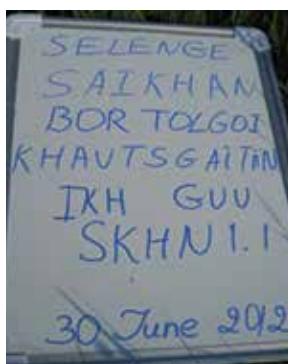 SELENGE
SAIKHAN
BOR TOLGOI
KHAVTSGAITIIN
IKH GUU
SKHN1.1
30 June 2012